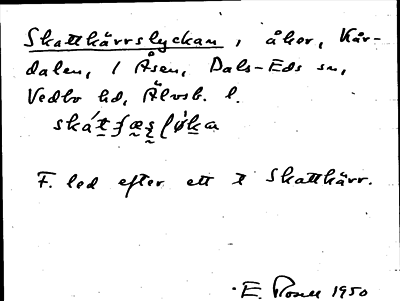 Skattkärrslyckan, åker, Kår-
dalen, 1 Åsen, Dals-Eds sn,
Vedbo hd, Älvsb. l.
F. led efter ett † Skattkärr.
E. Rosell 1950